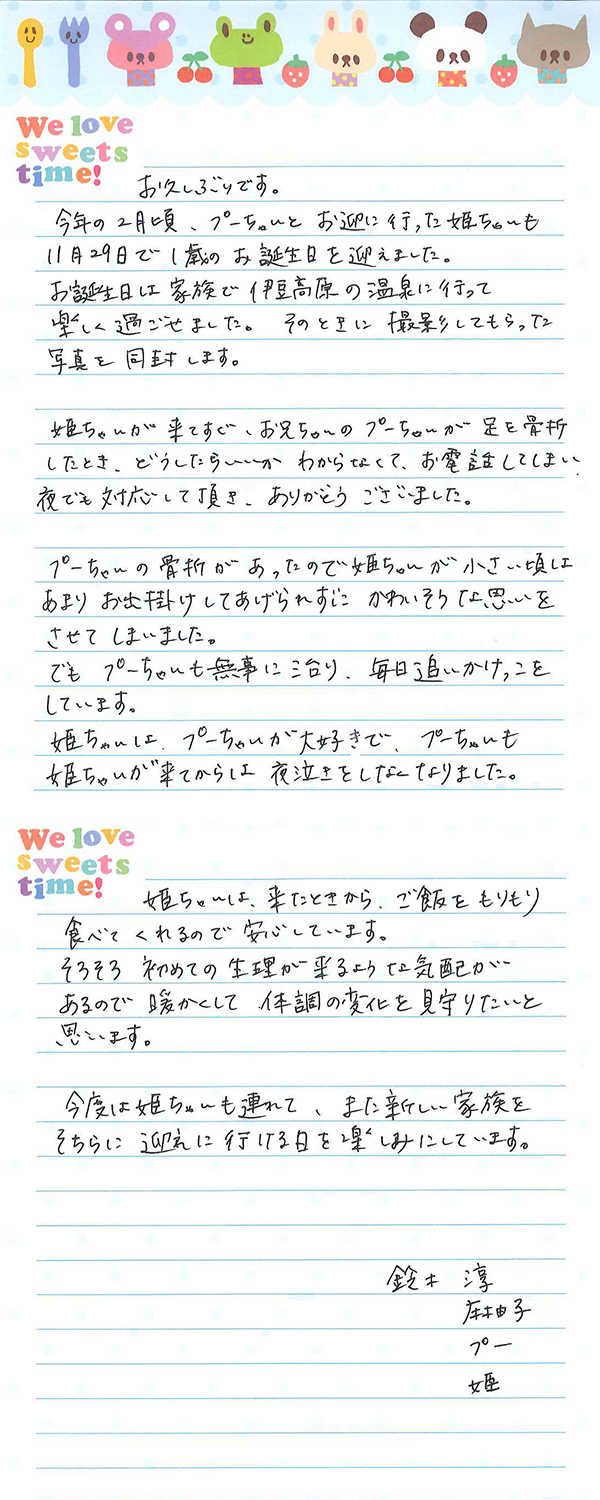 We love
sweets
time!
お久しぶりです。
今年の2月頃、プーちゃんと お迎に行った姫ちゃんも
11月29日で 1歳の お誕生日を迎えました。
お誕生日は 家族で 伊豆高原の温泉に行って
楽しく過ごせました。 そのときに 撮影してもらった
写真を 同封します。
姫ちゃんが 来てすぐ、お兄ちゃんの プーちゃんが 足を骨折
したとき、どうしたらいいか わからなくて、お電話してしまい
夜でも対応して頂き、ありがとう ございました。
プーちゃんの骨折が あったので姫ちゃんが 小さい頃は
あまり お出掛けしてあげられずに かわいそうな思いを
させて しまいました。
でも プーちゃんも無事に治り、毎日追いかけっこを
しています。
姫ちゃんは、プーちゃんが大好きで、プーちゃんも
姫ちゃんが来てからは 夜泣きをしなくなりました。
We love
sweets
time!
姫ちゃんは、来たときから、ご飯を もりもり
食べて くれるので 安心しています。
そろそろ 初めての 生理が来るような気配が
あるので 暖かくして 体調の変化を見守りたいと
思います。
今度は姫ちゃんも連れて、また新しい家族を
そちらに 迎えに行ける日を楽しみにしています。
鈴木 淳
麻由子
プー
姫